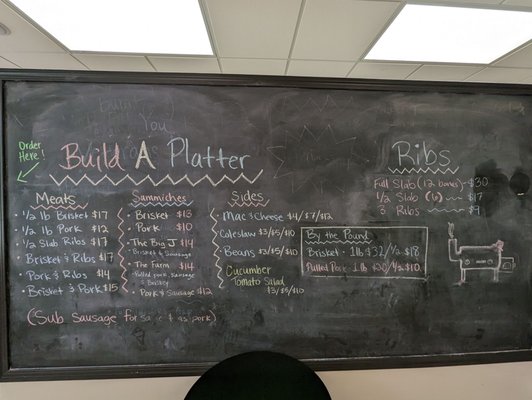 Order
Here!
Build A Platter
Meats
1/2 lb Brisket $17
1/2 lb Pork $12
1/2 Slab Ribs $17
Brisket & Ribs $17
Pork & Ribs $14
Brisket & Pork $15
(Sub Sausage for same $ as pork)
Sammiches
Brisket $13
Pork $10
The Big J $14
Brisket & Sausage
The Farm $14
Pulled pork, Sausage
& Brisket
Pork & Sausage $12
Sides
Mac & Cheese $4/$7/$12
Coleslaw $3/$5/$10
Beans $3/$5/$10
Cucumber
Tomato Salad
$3/$5/$10
By the Pound
Brisket - 1lb $32/ 1/2 $18
Pulled Pork 1lb $20/ 1/2 $10
Ribs
Full Slab (12 bones) $30
1/2 Slab (6) $17
3 Ribs $9